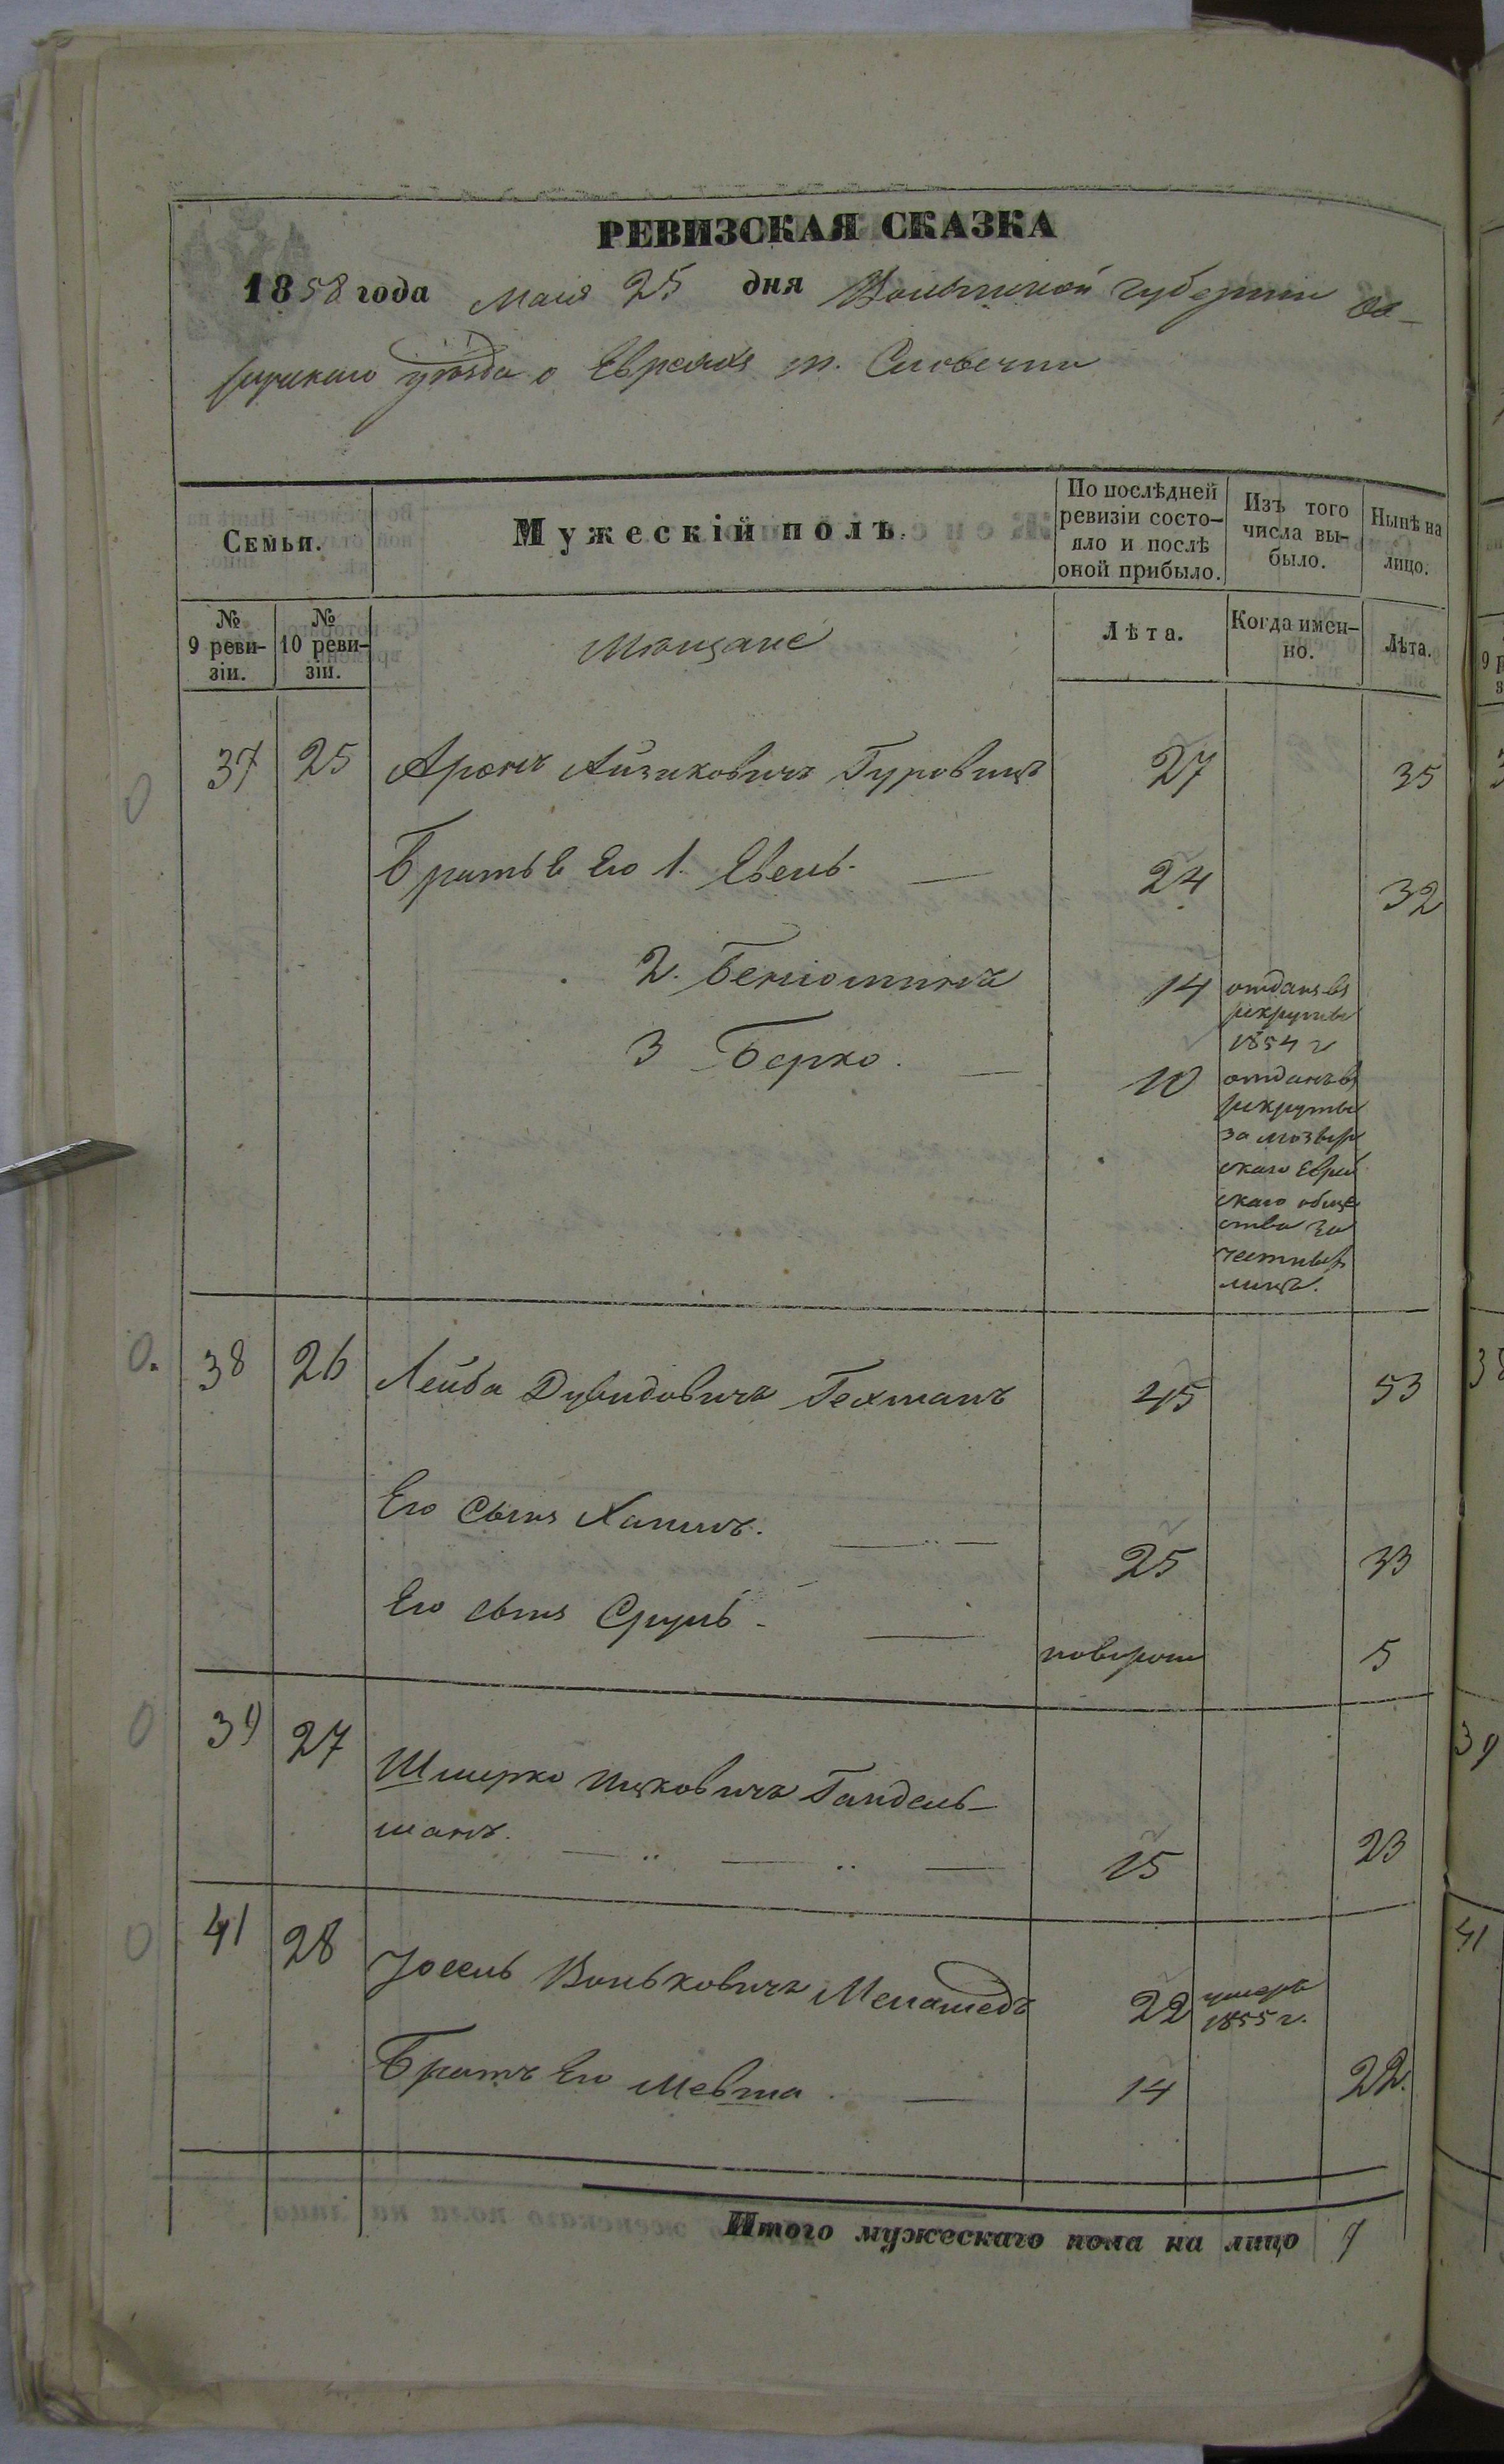 РЕВИЗСКАЯ СКАЗКА
1858 года Маія 25 дня Волынской губерніи Ов-
ручскаго уѣзда о Евреяхъ м. Словечны
Семьи.
Мужескій полъ.
По послѣдней ревизіи состо-
яло и послѣ оной прибыло.
Изъ того числа вы-
было.
Нынѣ на лицо.
№ 9 реви-
зіи.
№ 10 реви-
зіи.
Мѣщане
Лѣта.
Когда имен-
но.
Лѣта.
37 25 Аронъ Айзиковичъ Гуровицъ 27 35
Братья Его 1. Евель 24 32
2. Беніоминъ 14 отданъ въ
рекруты
1854 г
3 Берко. 10 отданъ въ
рекруты
за мозыр
скаго Еврей
скаго обще
ства за
лицъ.
38 26 Лейба Дувидовичъ Гехманъ 45 53
Его Сынъ Хаимъ. 25 33
Его сынъ Сруль 5
39 27 Шмерко Ицковичъ Гандель-
манъ. 15 23
41 28 Іосель Вольковичъ Менашедъ 22 умеръ
1855 г.
Братъ Его Мевша 14 22.
Итого мужескаго пола на лицо 7